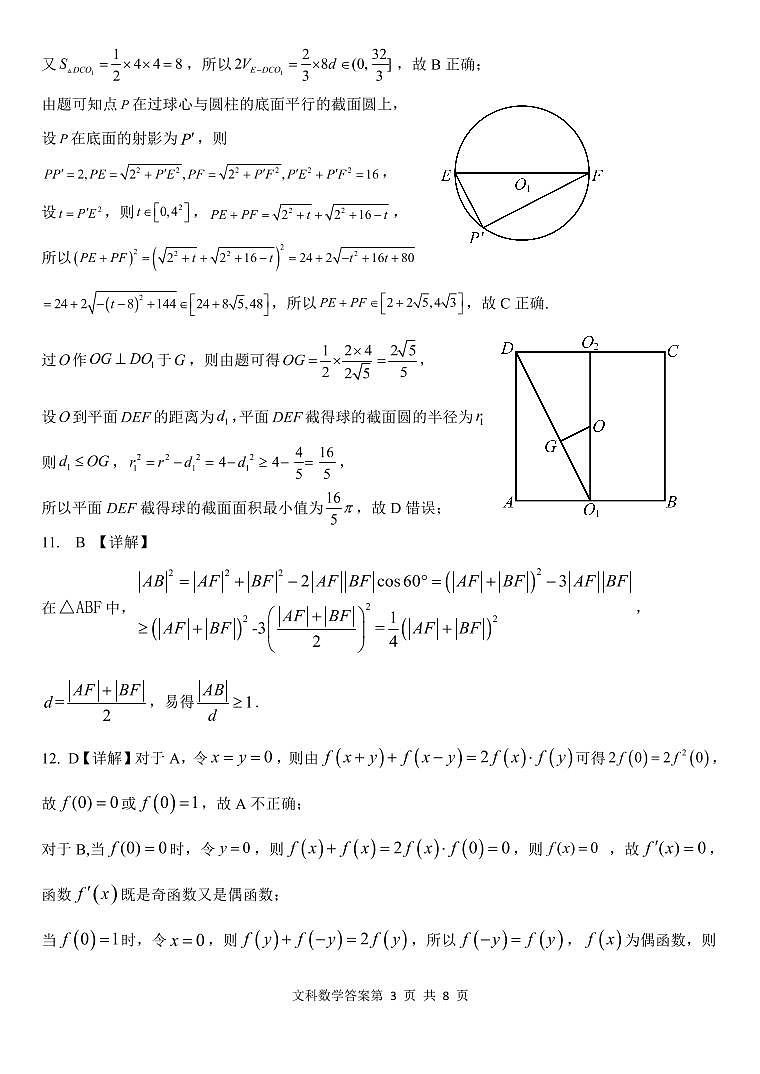 又 $S_{\triangle DCO_1}=\frac{1}{2}\times 4\times 4=8$，所以 $2V_{E-DCO_1}=\frac{2}{3}\times 8d\in(0,\frac{32}{3}]$，故 B 正确；
由题可知点 P 在过球心与圆柱的底面平行的截面圆上，
设 P 在底面的射影为 P′，则
$PP'=2,PE=\sqrt{2^2+P'E^2},PF=\sqrt{2^2+P'F^2},P'E^2+P'F^2=16$，
设 $t=P'E^2$，则 $t\in[0,4^2]$，$PE+PF=\sqrt{2^2+t}+\sqrt{2^2+16-t}$，
所以 $(PE+PF)^2=\left(\sqrt{2^2+t}+\sqrt{2^2+16-t}\right)^2=24+2\sqrt{-t^2+16t+80}$
$=24+2\sqrt{-(t-8)^2+144}\in[24+8\sqrt{5},48]$，所以 $PE+PF\in[2+2\sqrt{5},4\sqrt{3}]$，故 C 正确.
E
O₁
F
P′
过 O 作 $OG\perp DO_1$ 于 G，则由题可得 $OG=\frac{1}{2}\times\frac{2\times 4}{2\sqrt{5}}=\frac{2\sqrt{5}}{5}$，
设 O 到平面 DEF 的距离为 $d_1$,平面 DEF 截得球的截面圆的半径为 $r_1$
则 $d_1\leq OG$，$r_1^2=r^2-d_1^2=4-d_1^2\geq 4-\frac{4}{5}=\frac{16}{5}$，
所以平面 DEF 截得球的截面面积最小值为 $\frac{16}{5}\pi$，故 D 错误；
D
O₂
C
O
G
A
O₁
B
11. B 【详解】
在△ABF 中，$|AB|^2=|AF|^2+|BF|^2-2|AF||BF|\cos 60°=(|AF|+|BF|)^2-3|AF||BF|$
$\geq(|AF|+|BF|)^2-3\left(\frac{|AF|+|BF|}{2}\right)^2=\frac{1}{4}(|AF|+|BF|)^2$，
$d=\frac{|AF|+|BF|}{2}$，易得 $\frac{|AB|}{d}\geq 1$.
12. D【详解】对于 A，令 $x=y=0$，则由 $f(x+y)+f(x-y)=2f(x)\cdot f(y)$ 可得 $2f(0)=2f^2(0)$，
故 $f(0)=0$ 或 $f(0)=1$，故 A 不正确；
对于 B,当 $f(0)=0$ 时，令 $y=0$，则 $f(x)+f(x)=2f(x)\cdot f(0)=0$，则 $f(x)=0$ ，故 $f'(x)=0$，
函数 $f'(x)$ 既是奇函数又是偶函数；
当 $f(0)=1$ 时，令 $x=0$，则 $f(y)+f(-y)=2f(y)$，所以 $f(-y)=f(y)$，$f(x)$ 为偶函数，则
文科数学答案第 3 页 共 8 页